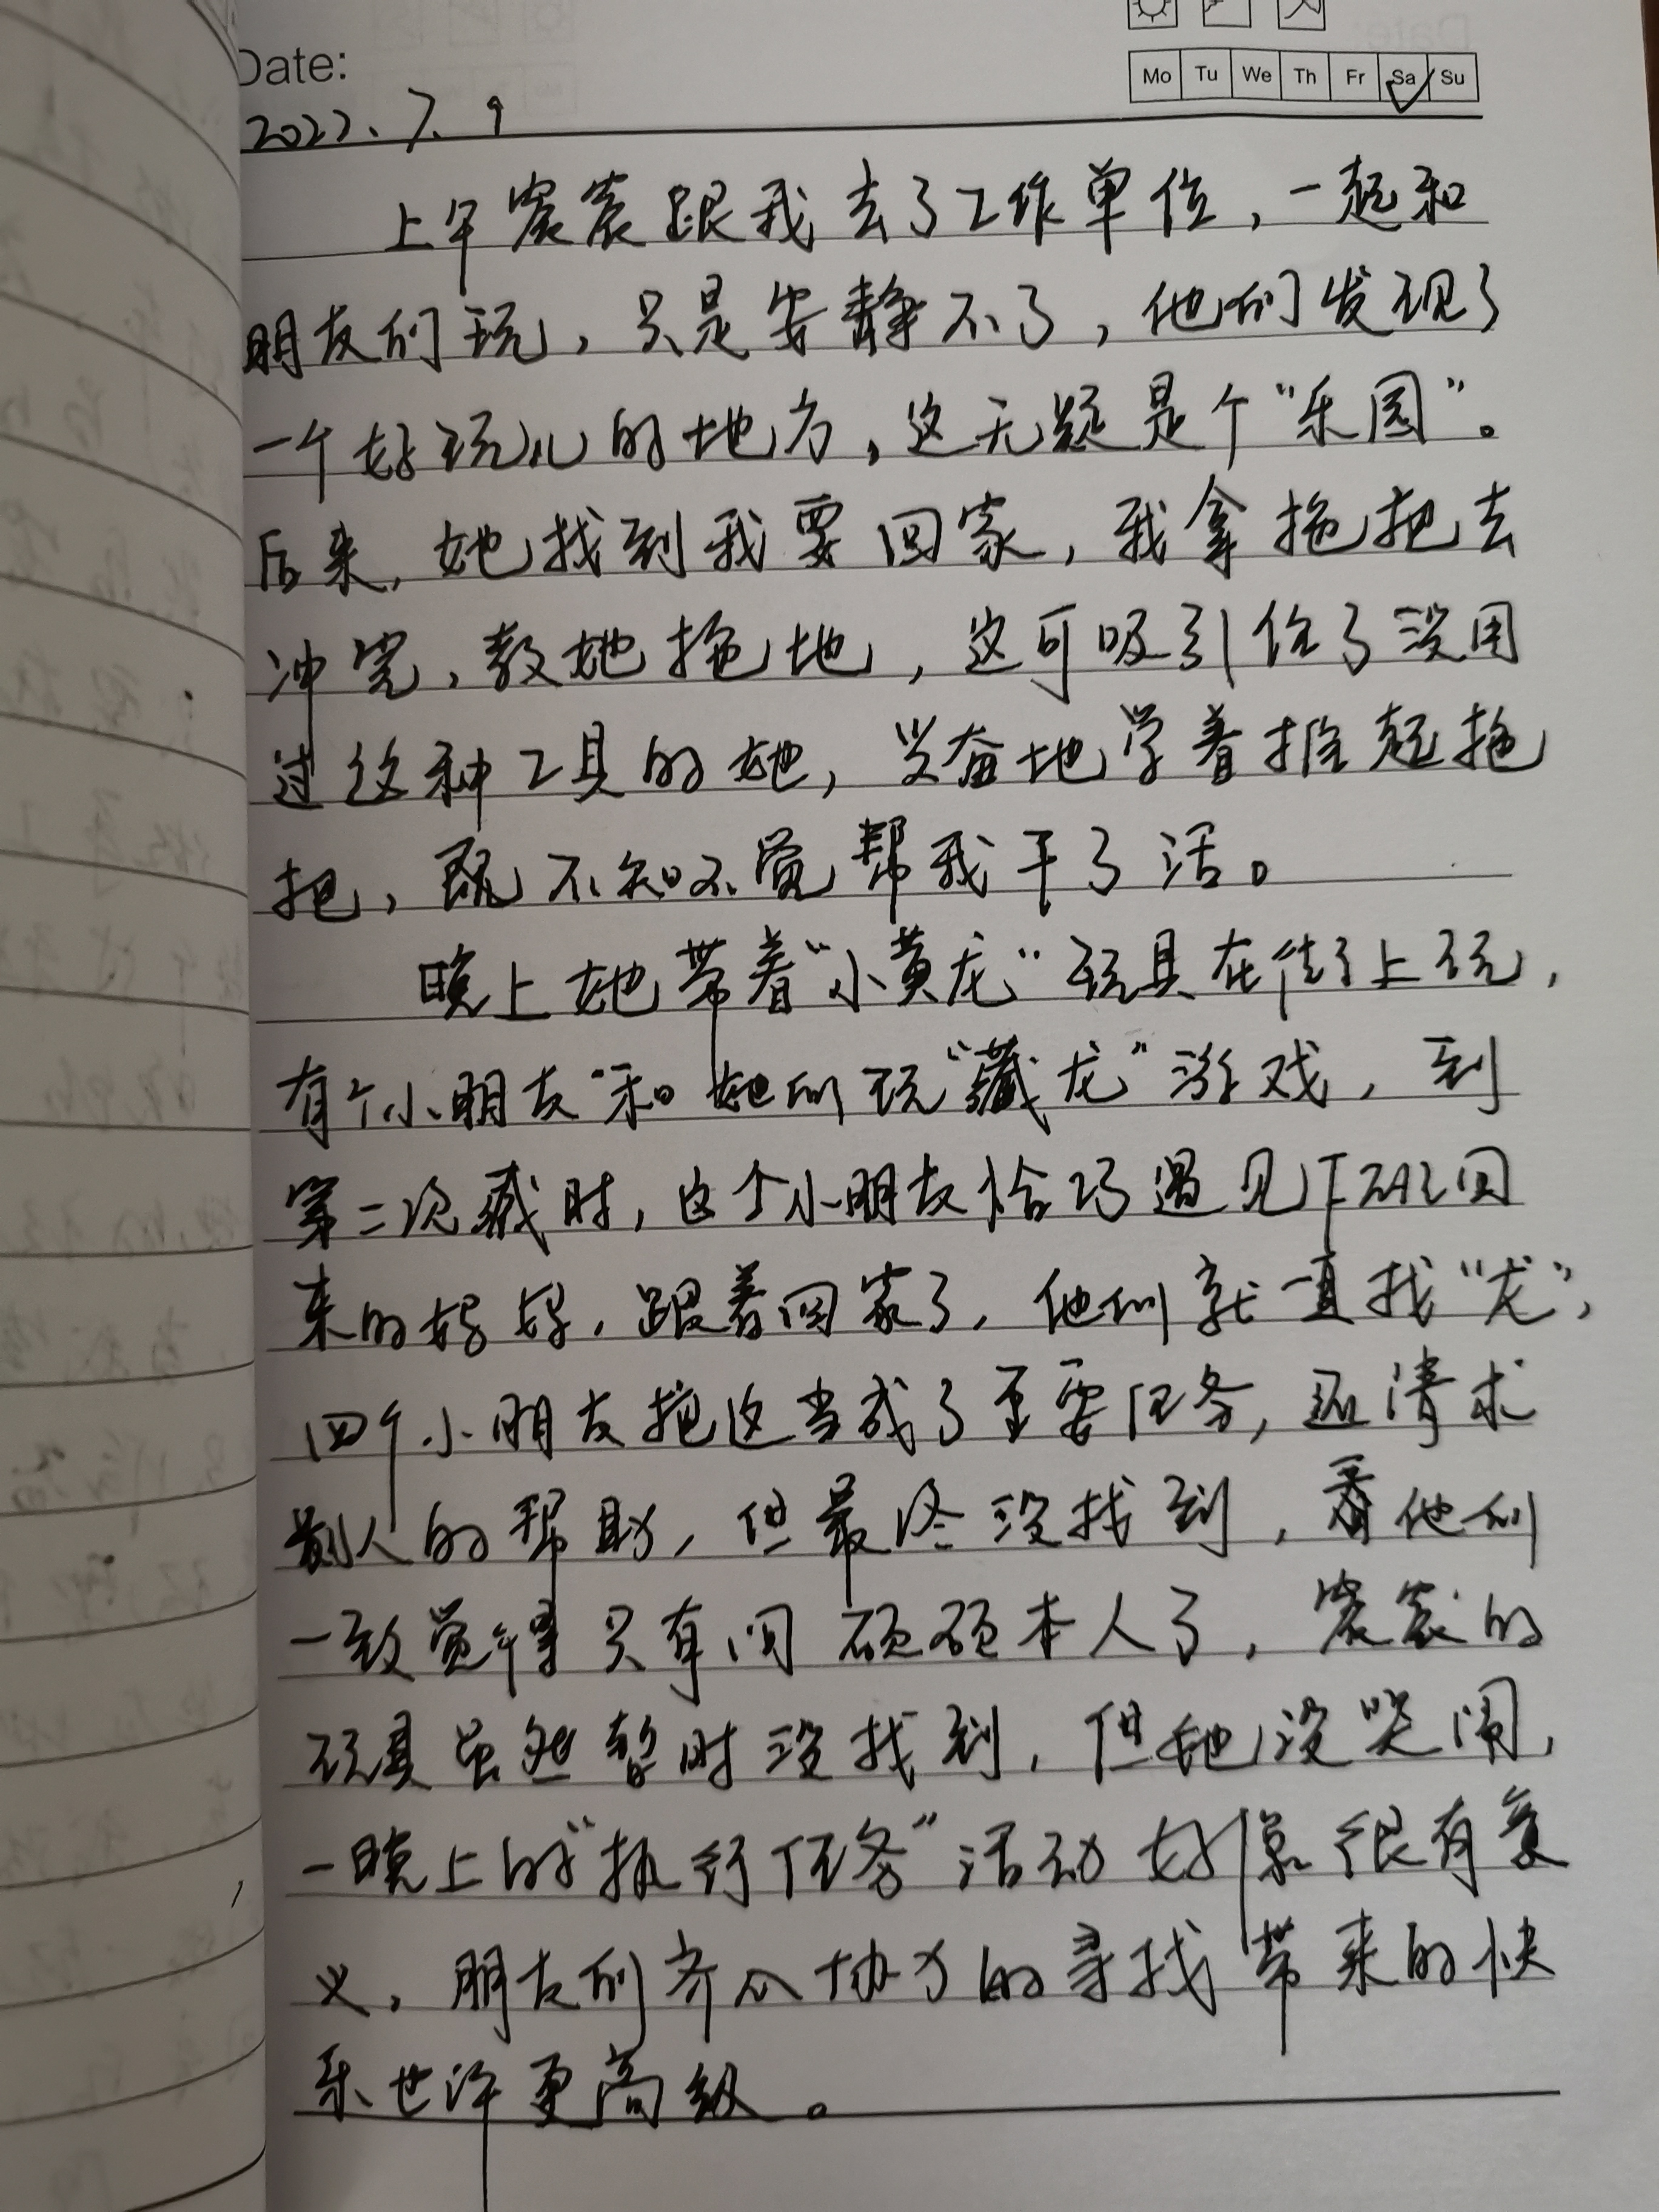 Date:
Mo Tu We Th Fr Sa Su
2022.7.9
上午宸宸跟我去了工作单位，一起和
朋友们玩，只是安静不了，他们发现了
一个好玩儿的地方，这无疑是个“乐园”。
后来，她找到我要回家，我拿拖把去
冲完，教她拖地，这可吸引住了没用
过这种工具的她，兴奋地学着推起拖
把，既不知不觉帮我干了活。
晚上她带着“小黄龙”玩具在街上玩，
有个小朋友和她们玩“藏龙”游戏，到
第二次藏时，这个小朋友恰巧遇见下班回
来的妈妈，跟着回家了，他们就一直找“龙”，
四个小朋友把这当成了重要任务，还请求
别人的帮助，但最终没找到，看他们
一致觉得只有问硕硕本人了，宸宸的
玩具虽然暂时没找到，但她没哭闹，
一晚上的“执行任务”活动好像很有意
义，朋友们齐心协力的寻找带来的快
乐也许更高级。